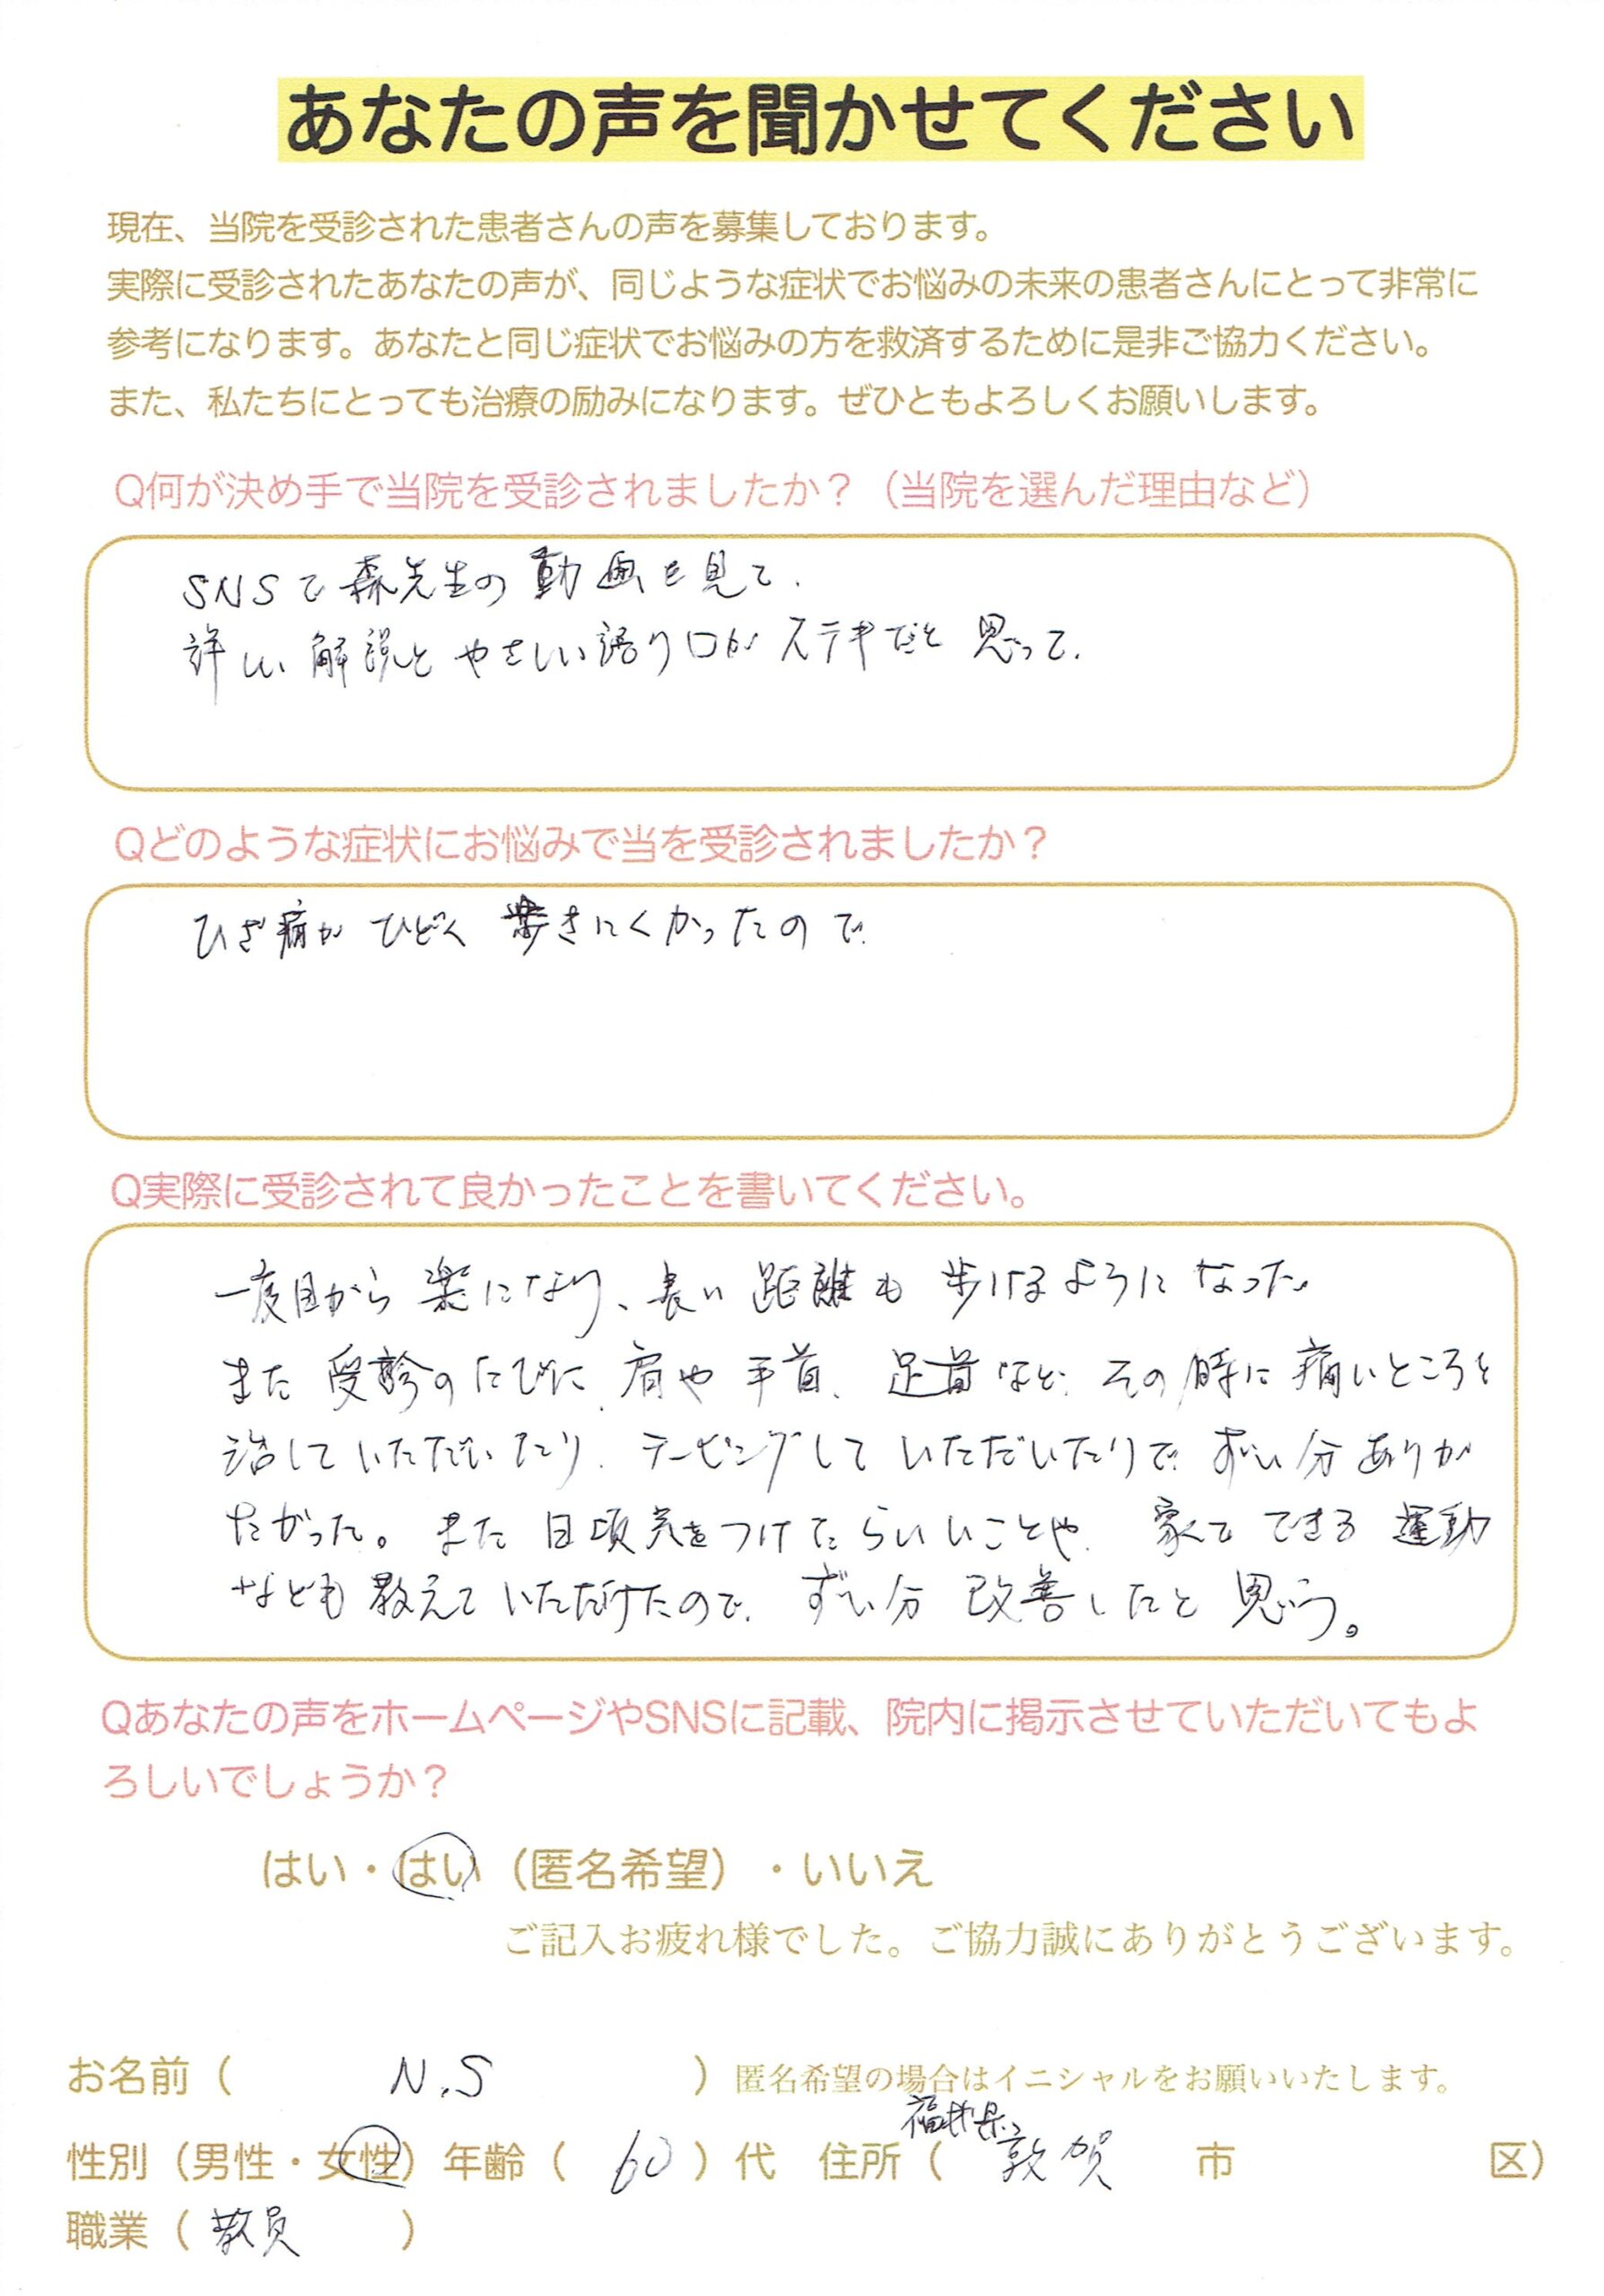 あなたの声を聞かせてください
現在、当院を受診された患者さんの声を募集しております。
実際に受診されたあなたの声が、同じような症状でお悩みの未来の患者さんにとって非常に
参考になります。あなたと同じ症状でお悩みの方を救済するために是非ご協力ください。
また、私たちにとっても治療の励みになります。ぜひともよろしくお願いします。
Q何が決め手で当院を受診されましたか？（当院を選んだ理由など）
SNSで森先生の動画を見て、
詳しい解説とやさしい語り口がステキだと思って、
Qどのような症状にお悩みで当を受診されましたか？
ひざ痛がひどく歩きにくかったので、
Q実際に受診されて良かったことを書いてください。
一度目から楽になり、長い距離も歩けるようになった。
また受診のたびに、肩や手首、足首など、その時に痛いところを
治していただいたり、テーピングしていただいたりで、ずい分ありが
たかった。また日頃気をつけたらいいことや、家でできる運動
なども教えていただけたので、ずい分改善したと思う。
Qあなたの声をホームページやSNSに記載、院内に掲示させていただいてもよ
ろしいでしょうか？
はい・はい（匿名希望）・いいえ
ご記入お疲れ様でした。ご協力誠にありがとうございます。
お名前（ N.S ）匿名希望の場合はイニシャルをお願いいたします。
福井県
性別（男性・女性）年齢（ 60 ）代 住所（ 敦賀 市 区）
職業（ 教員 ）